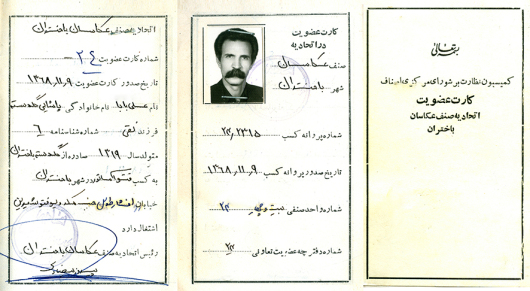 بسمه تعالی
کمیسیون نظارت بر شورای مرکزی اصناف
کارت عضویت
اتحادیه صنف عکاسان
باختران
کارت عضویت
در اتحادیه
صنف عکاسان
شهر باختران
شماره پروانه کسب ۲۲/۲۳۱۵
تاریخ صدور پروانه کسب ۱۳۶۸/۱۱/۹
شماره واحد صنفی
شماره دفترچه عضویت تعاونی
اتحادیه صنف عکاسان باختران
شماره کارت عضویت ۲۴
تاریخ صدور کارت عضویت ۱۳۶۸/۱۱/۹
نام نام خانوادگی
فرزند تقی شماره شناسنامه ۶
متولد سال ۱۳۱۹ صادره از
به کسب در شهر باختران
خیابان
اشتغال دارد
رئیس اتحادیه صنف عکاسان باختران